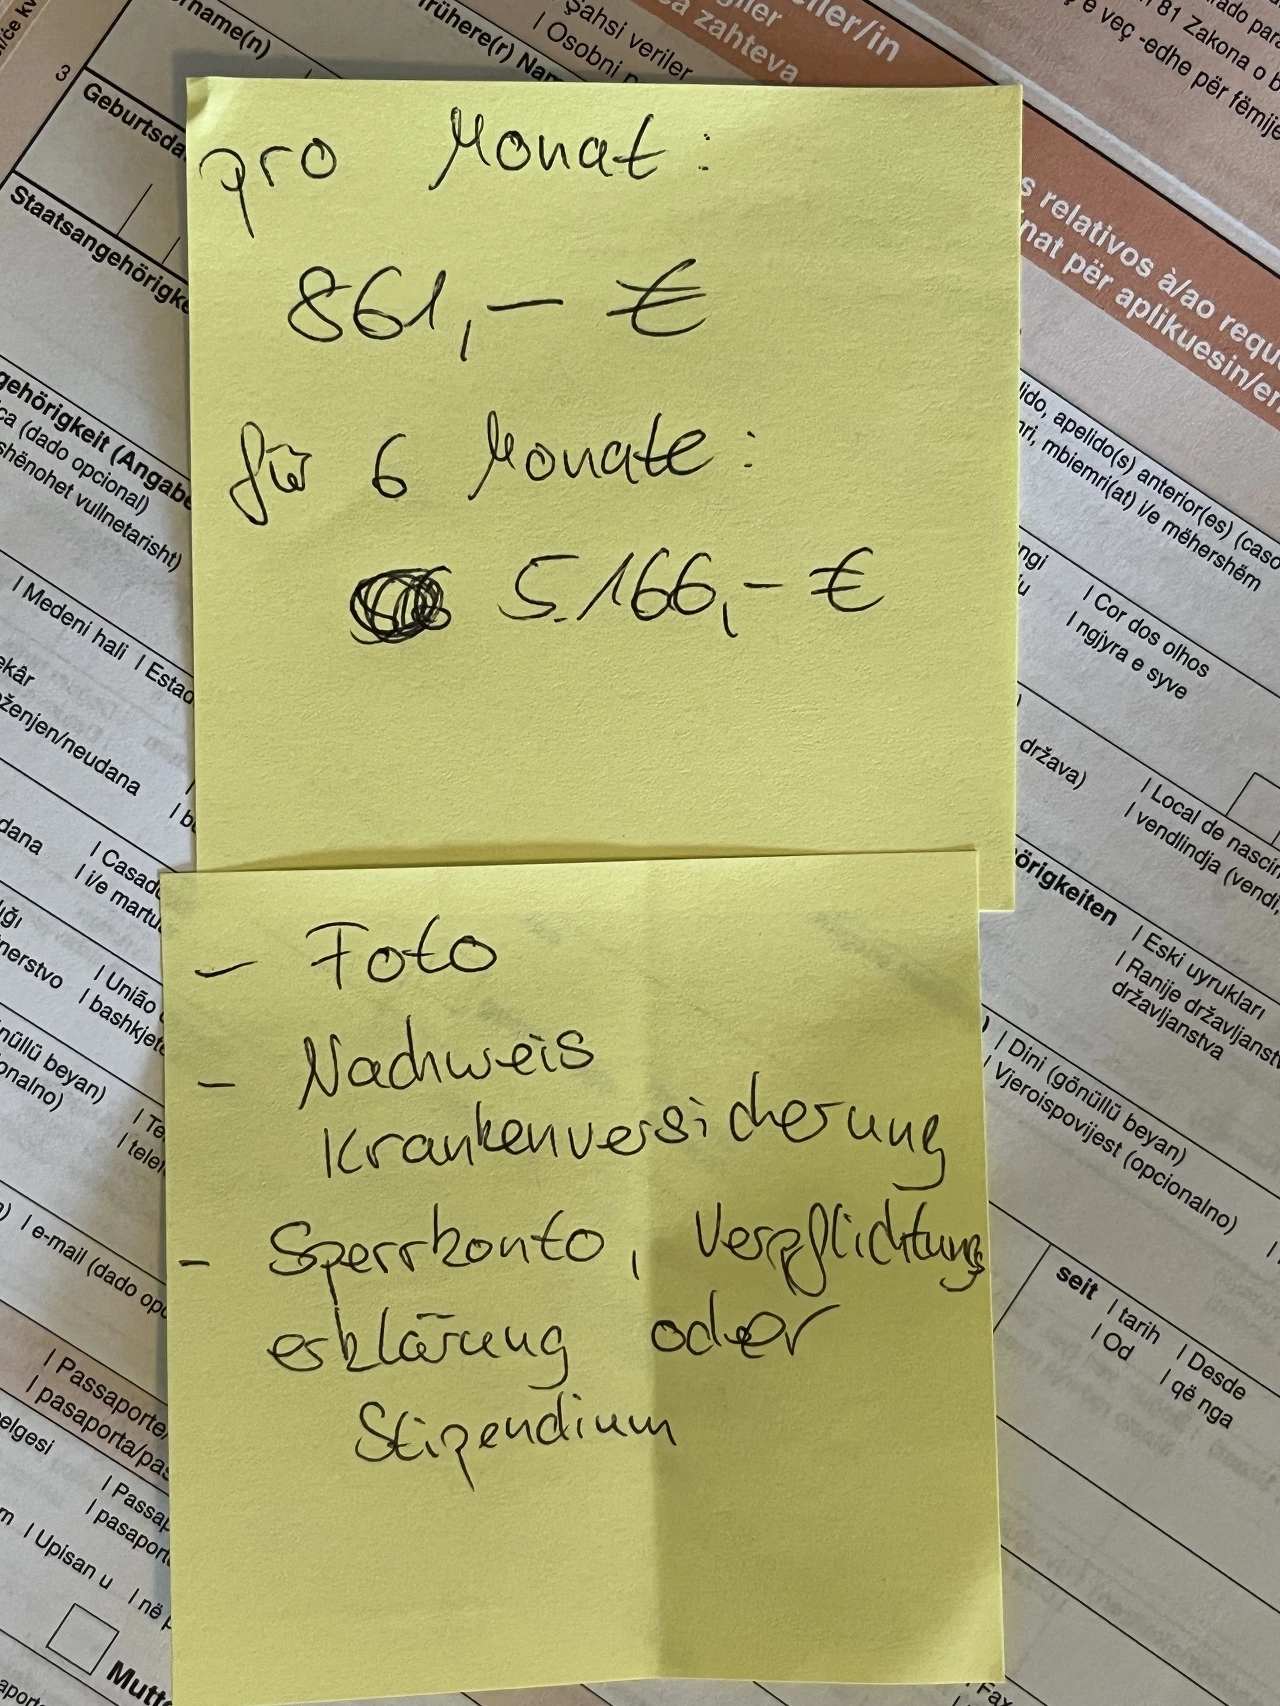 pro Monat:
861,- €
für 6 Monate:
5.166,- €
- Foto
- Nachweis
Krankenversicherung
- Sperrkonto, Verpflichtungs
erklärung oder
Stipendium
name(n)
3
Geburtsda
Staatsangehörigke
Şahsi veriler
| Osobni
ca zahteva
eller/in
81 Zakona o
ç e veç -edhe për fëmije
s relativos à/ao requ
nat për aplikuesin/en
gehörigkeit (Angabe
ca (dado opcional)
shënohet vullnetarisht)
lido, apelido(s) anterior(es) (caso
mbiemri(at) i/e mëhershëm
| Medeni hali | Estad
ekâr
oženjen/neudana
| Cor dos olhos
| ngjyra e syve
država)
| Local de nascin
| vendlindja (vendi,
dana
| Casado
| i/e martu
örigkeiten
| Eski uyrukları
| Ranije državljanst
državljanstva
nerstvo
| União
| bashkjete
nüllü beyan)
onalno)
| Te
| telef
| Dini (gönüllü beyan)
| Vjeroispovijest (opcionalno)
| e-mail (dado opc
seit | tarih | Desde
| Od | që nga
| Passaporte/
| pasaporta/pas
elgesi
| Passap
| pasaport
| Upisan u | në p
Mutte
| Fax